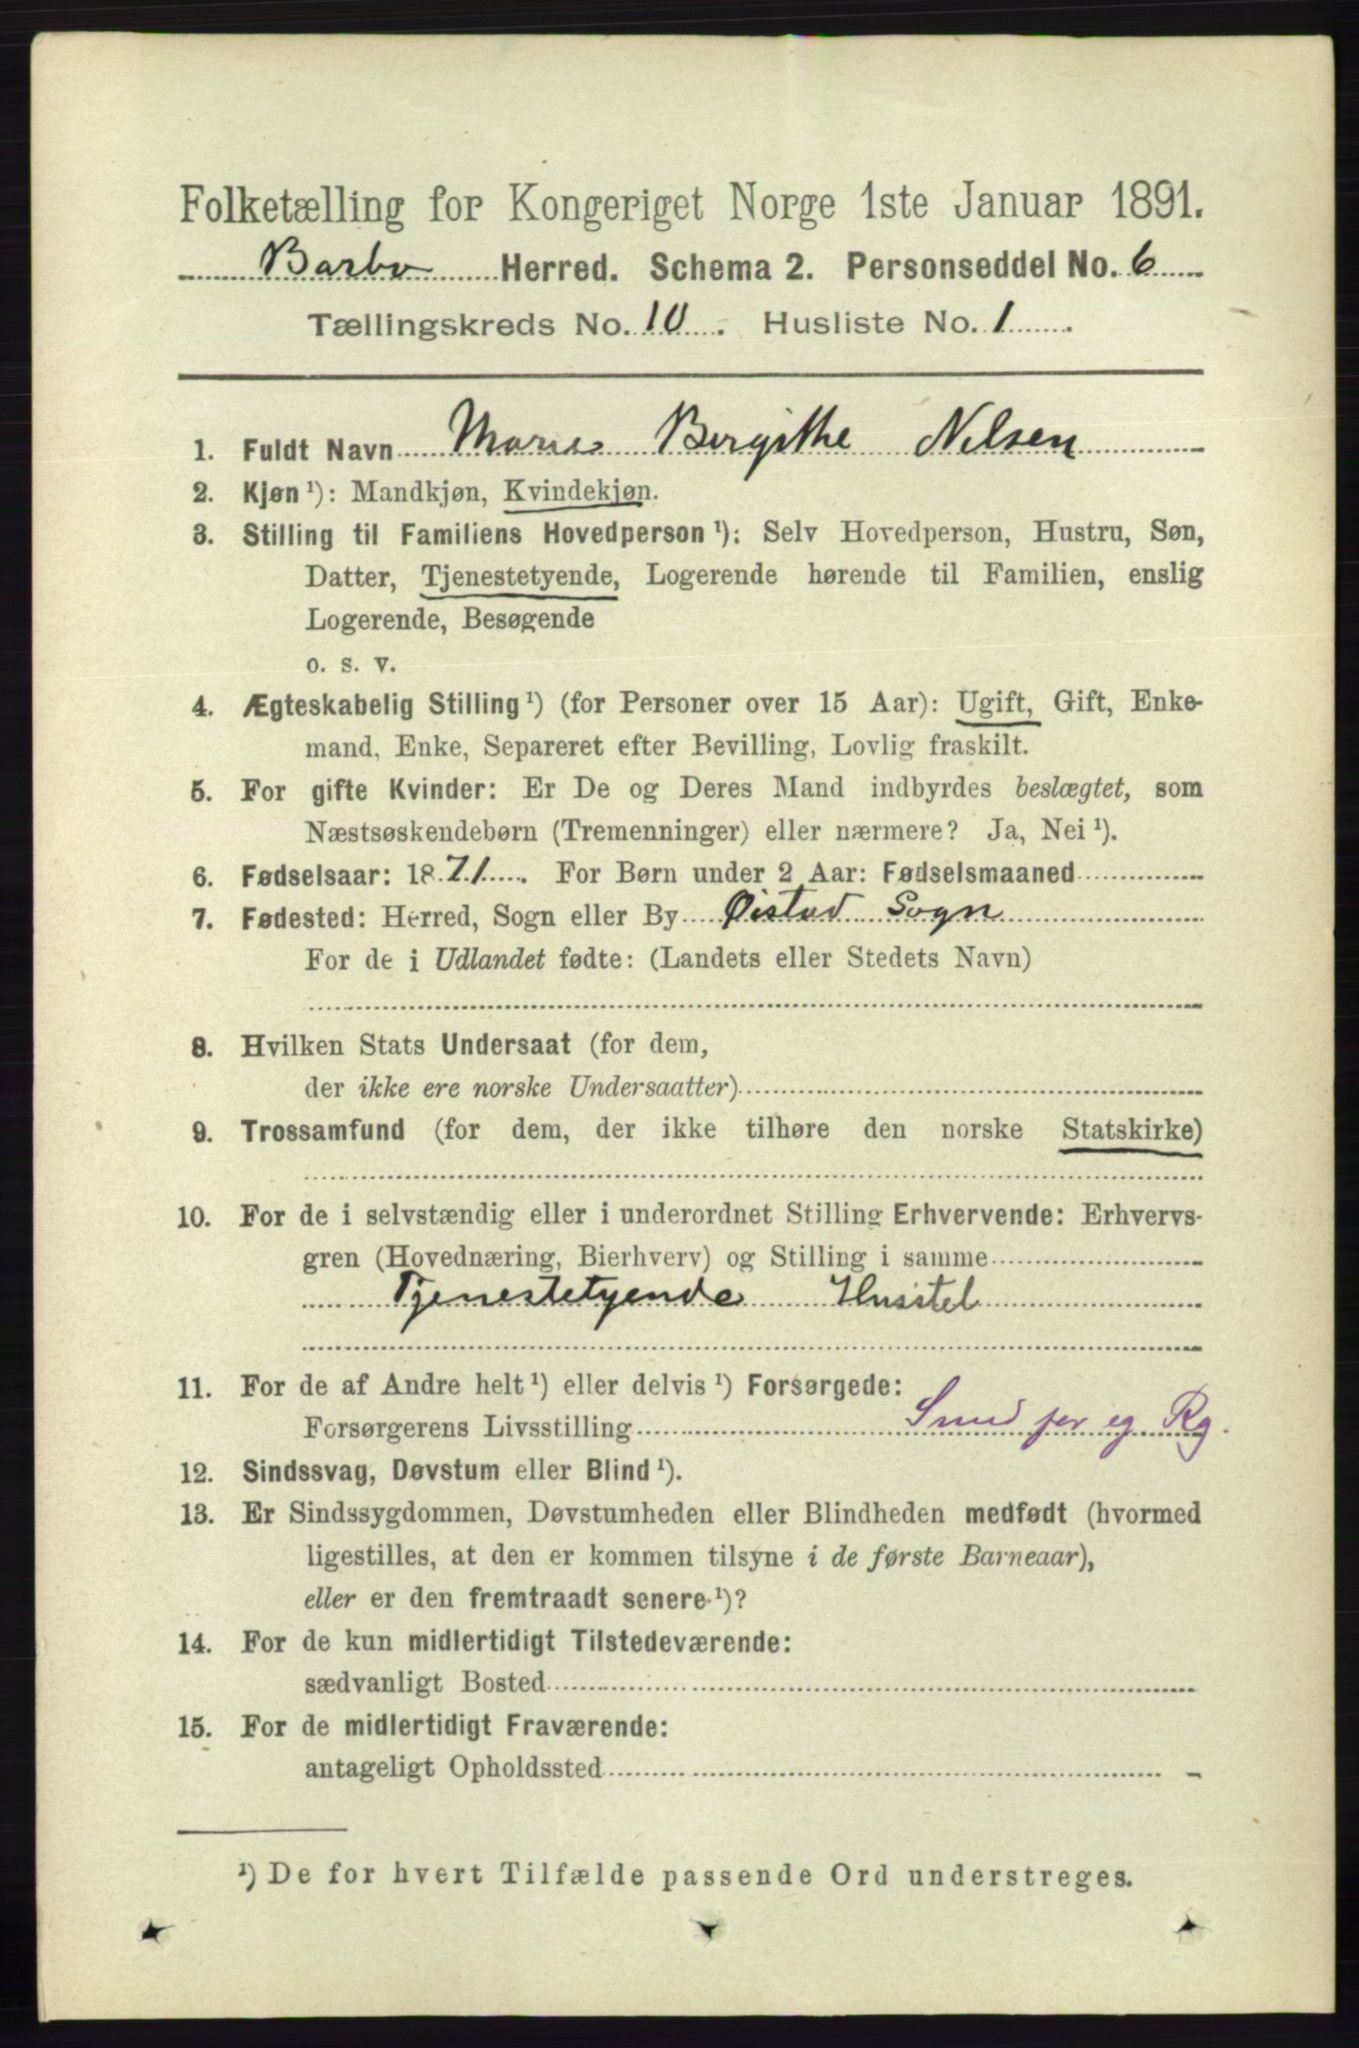 Folketælling for Kongeriget Norge 1ste Januar 1891.
Barbo Herred. Schema 2. Personseddel No. 6
Tællingskreds No. 10. Husliste No. 1.
1. Fuldt Navn Marie Bergithe Nilsen
2. Kjøn ¹): Mandkjøn, Kvindekjøn.
3. Stilling til Familiens Hovedperson ¹): Selv Hovedperson, Hustru, Søn,
Datter, Tjenestetyende, Logerende hørende til Familien, enslig
Logerende, Besøgende
o. s. v.
4. Ægteskabelig Stilling ¹) (for Personer over 15 Aar): Ugift, Gift, Enke-
mand, Enke, Separeret efter Bevilling, Lovlig fraskilt.
5. For gifte Kvinder: Er De og Deres Mand indbyrdes beslægtet, som
Næstsøskendebørn (Tremenninger) eller nærmere? Ja, Nei ¹).
6. Fødselsaar: 1871. For Børn under 2 Aar: Fødselsmaaned
7. Fødested: Herred, Sogn eller By Øistad Sogn
For de i Udlandet fødte: (Landets eller Stedets Navn)
8. Hvilken Stats Undersaat (for dem,
der ikke ere norske Undersaatter)
9. Trossamfund (for dem, der ikke tilhøre den norske Statskirke)
10. For de i selvstændig eller i underordnet Stilling Erhvervende: Erhvervs-
gren (Hovednæring, Bierhverv) og Stilling i samme
Tjenestetyende Husstel
11. For de af Andre helt ¹) eller delvis ¹) Forsørgede:
Forsørgerens Livsstilling Smed for eg Rg.
12. Sindssvag, Døvstum eller Blind ¹).
13. Er Sindssygdommen, Døvstumheden eller Blindheden medfødt (hvormed
ligestilles, at den er kommen tilsyne i de første Barneaar),
eller er den fremtraadt senere ¹)?
14. For de kun midlertidigt Tilstedeværende:
sædvanligt Bosted
15. For de midlertidigt Fraværende:
antageligt Opholdssted
¹) De for hvert Tilfælde passende Ord understreges.